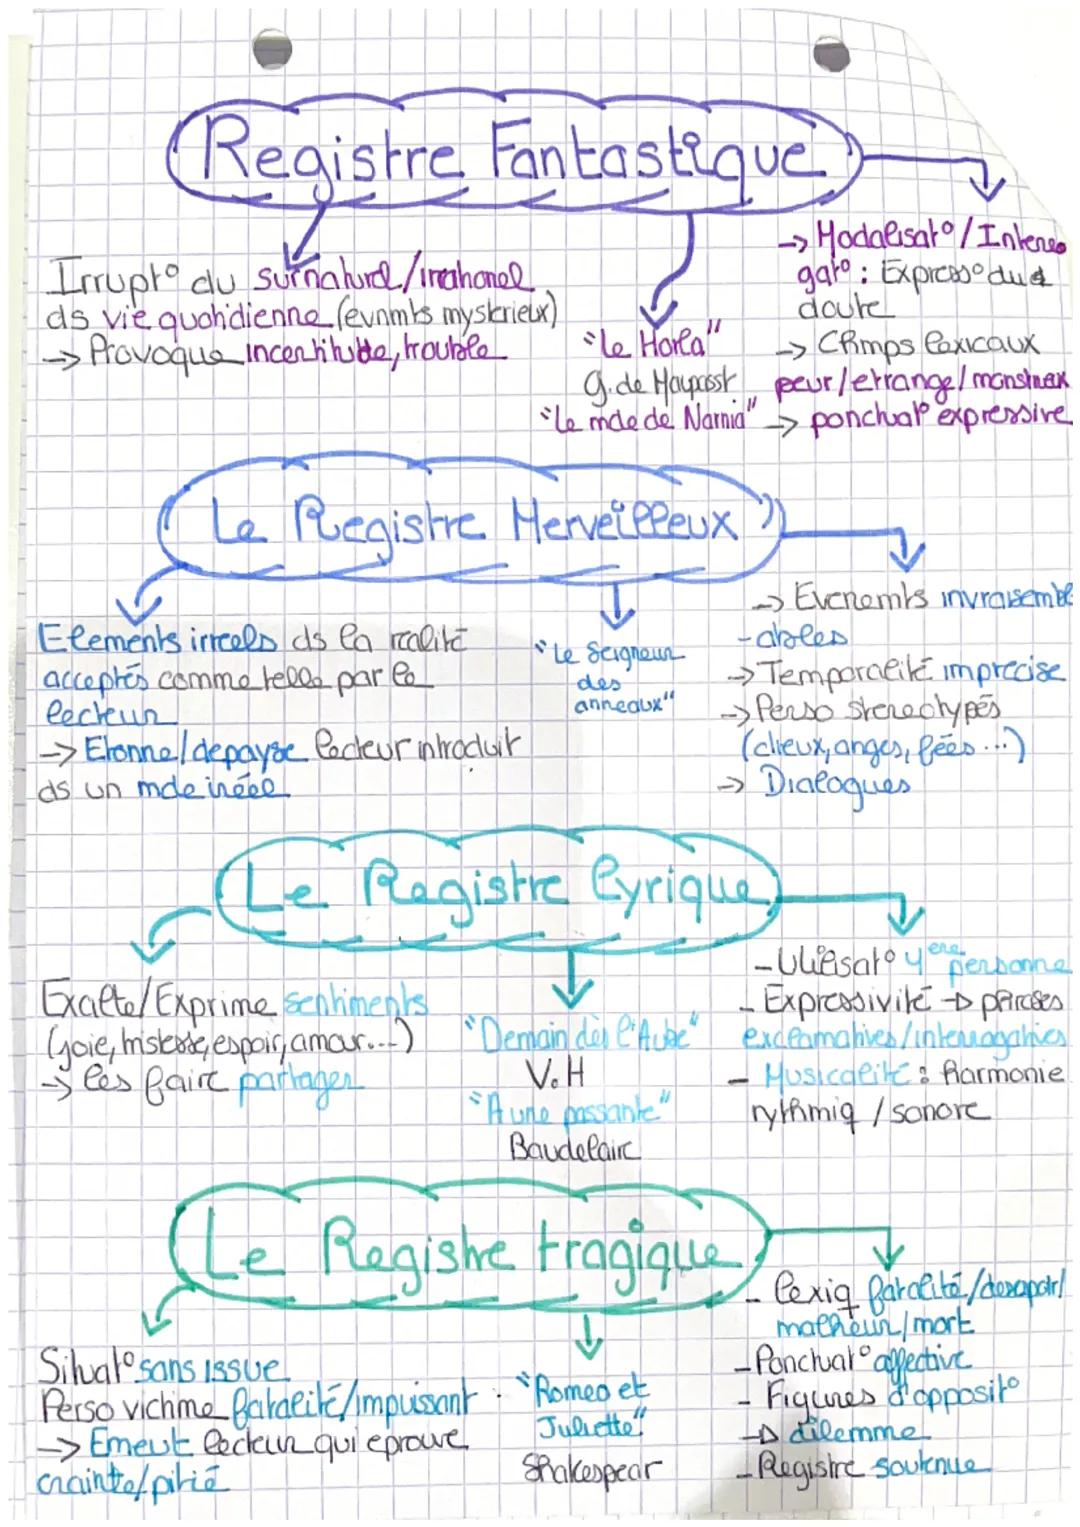 Registre Fantastique
Irrupt° du surnaturel/irrationel
ds vie quotidienne (evnmts mysterieux)
-> Provoque incertitude, trouble
"Le Horla"
G. de Maupasst
"Le mde de Narnia"
-> Modalisat°/Interro
gat° : Express° du
doute
-> Chmps lexicaux
peur/etrange/monstrueux
-> ponctuat° expressive
Le Registre Merveilleux
Elements irreels ds la realité
acceptés comme telle par le
lecteur
-> Etonne/depayse lecteur introduit
ds un mde irréel
"Le Seigneur
des
anneaux"
-> Evenemts invraisembl
-ables
-> Temporalité imprecise
-> Perso stereotypés
(dieux, anges, fées...)
-> Dialogues
Le Registre Lyrique
Exalte/Exprime sentiments
(joie, tristesse, espoir, amour...)
-> les faire partager
"Demain dès l'Aube"
V.H
"A une passante"
Baudelaire
- Utilisat° 1ere personne
- Expressivité -> phrases
exclamatives/interrogatives
- Musicalité : harmonie
rythmiq / sonore
Le Registre tragique
Situat° sans issue
Perso victime fatalité/impuissant
-> Emeut lecteur qui eprouve
crainte/pitié
"Romeo et
Juliette"
Shakespear
- lexiq fatalité/desespoir/
malheur/mort
- Ponctuat° affective
- Figures d'opposit°
-> dilemme
- Registre soutenue